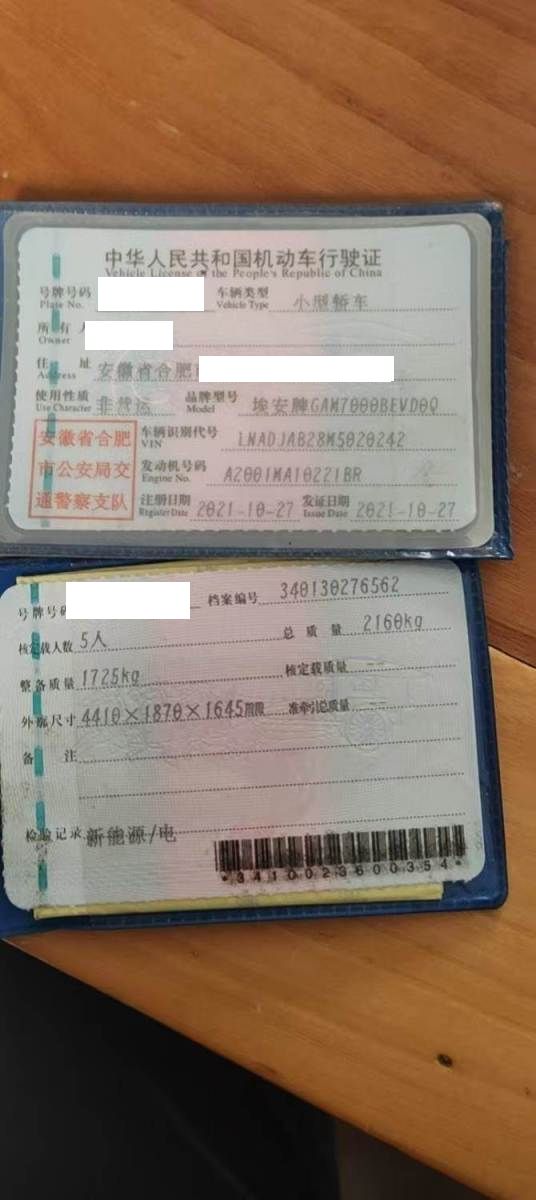 中华人民共和国机动车行驶证
Vehicle License of the People's Republic of China
号牌号码 车辆类型 小型轿车
Plate No. Vehicle Type
所有人
Owner
住址 安徽省合肥
Address
使用性质 非营运 品牌型号 埃安牌GAM7000BEVD0Q
Use Character Model
安徽省合肥
市公安局交
通警察支队
车辆识别代号 LNADJAB28M5020242
VIN
发动机号码 A2001MA10221BR
Engine No.
注册日期 2021-10-27 发证日期 2021-10-27
Register Date Issue Date
号牌号码 档案编号 340130276562
核定载人数 5人 总质量 2160kg
整备质量 1725kg 核定载质量 --
外廓尺寸 4410×1870×1645mm 准牵引总质量 --
备注
检验记录 新能源/电
*3410023600354*